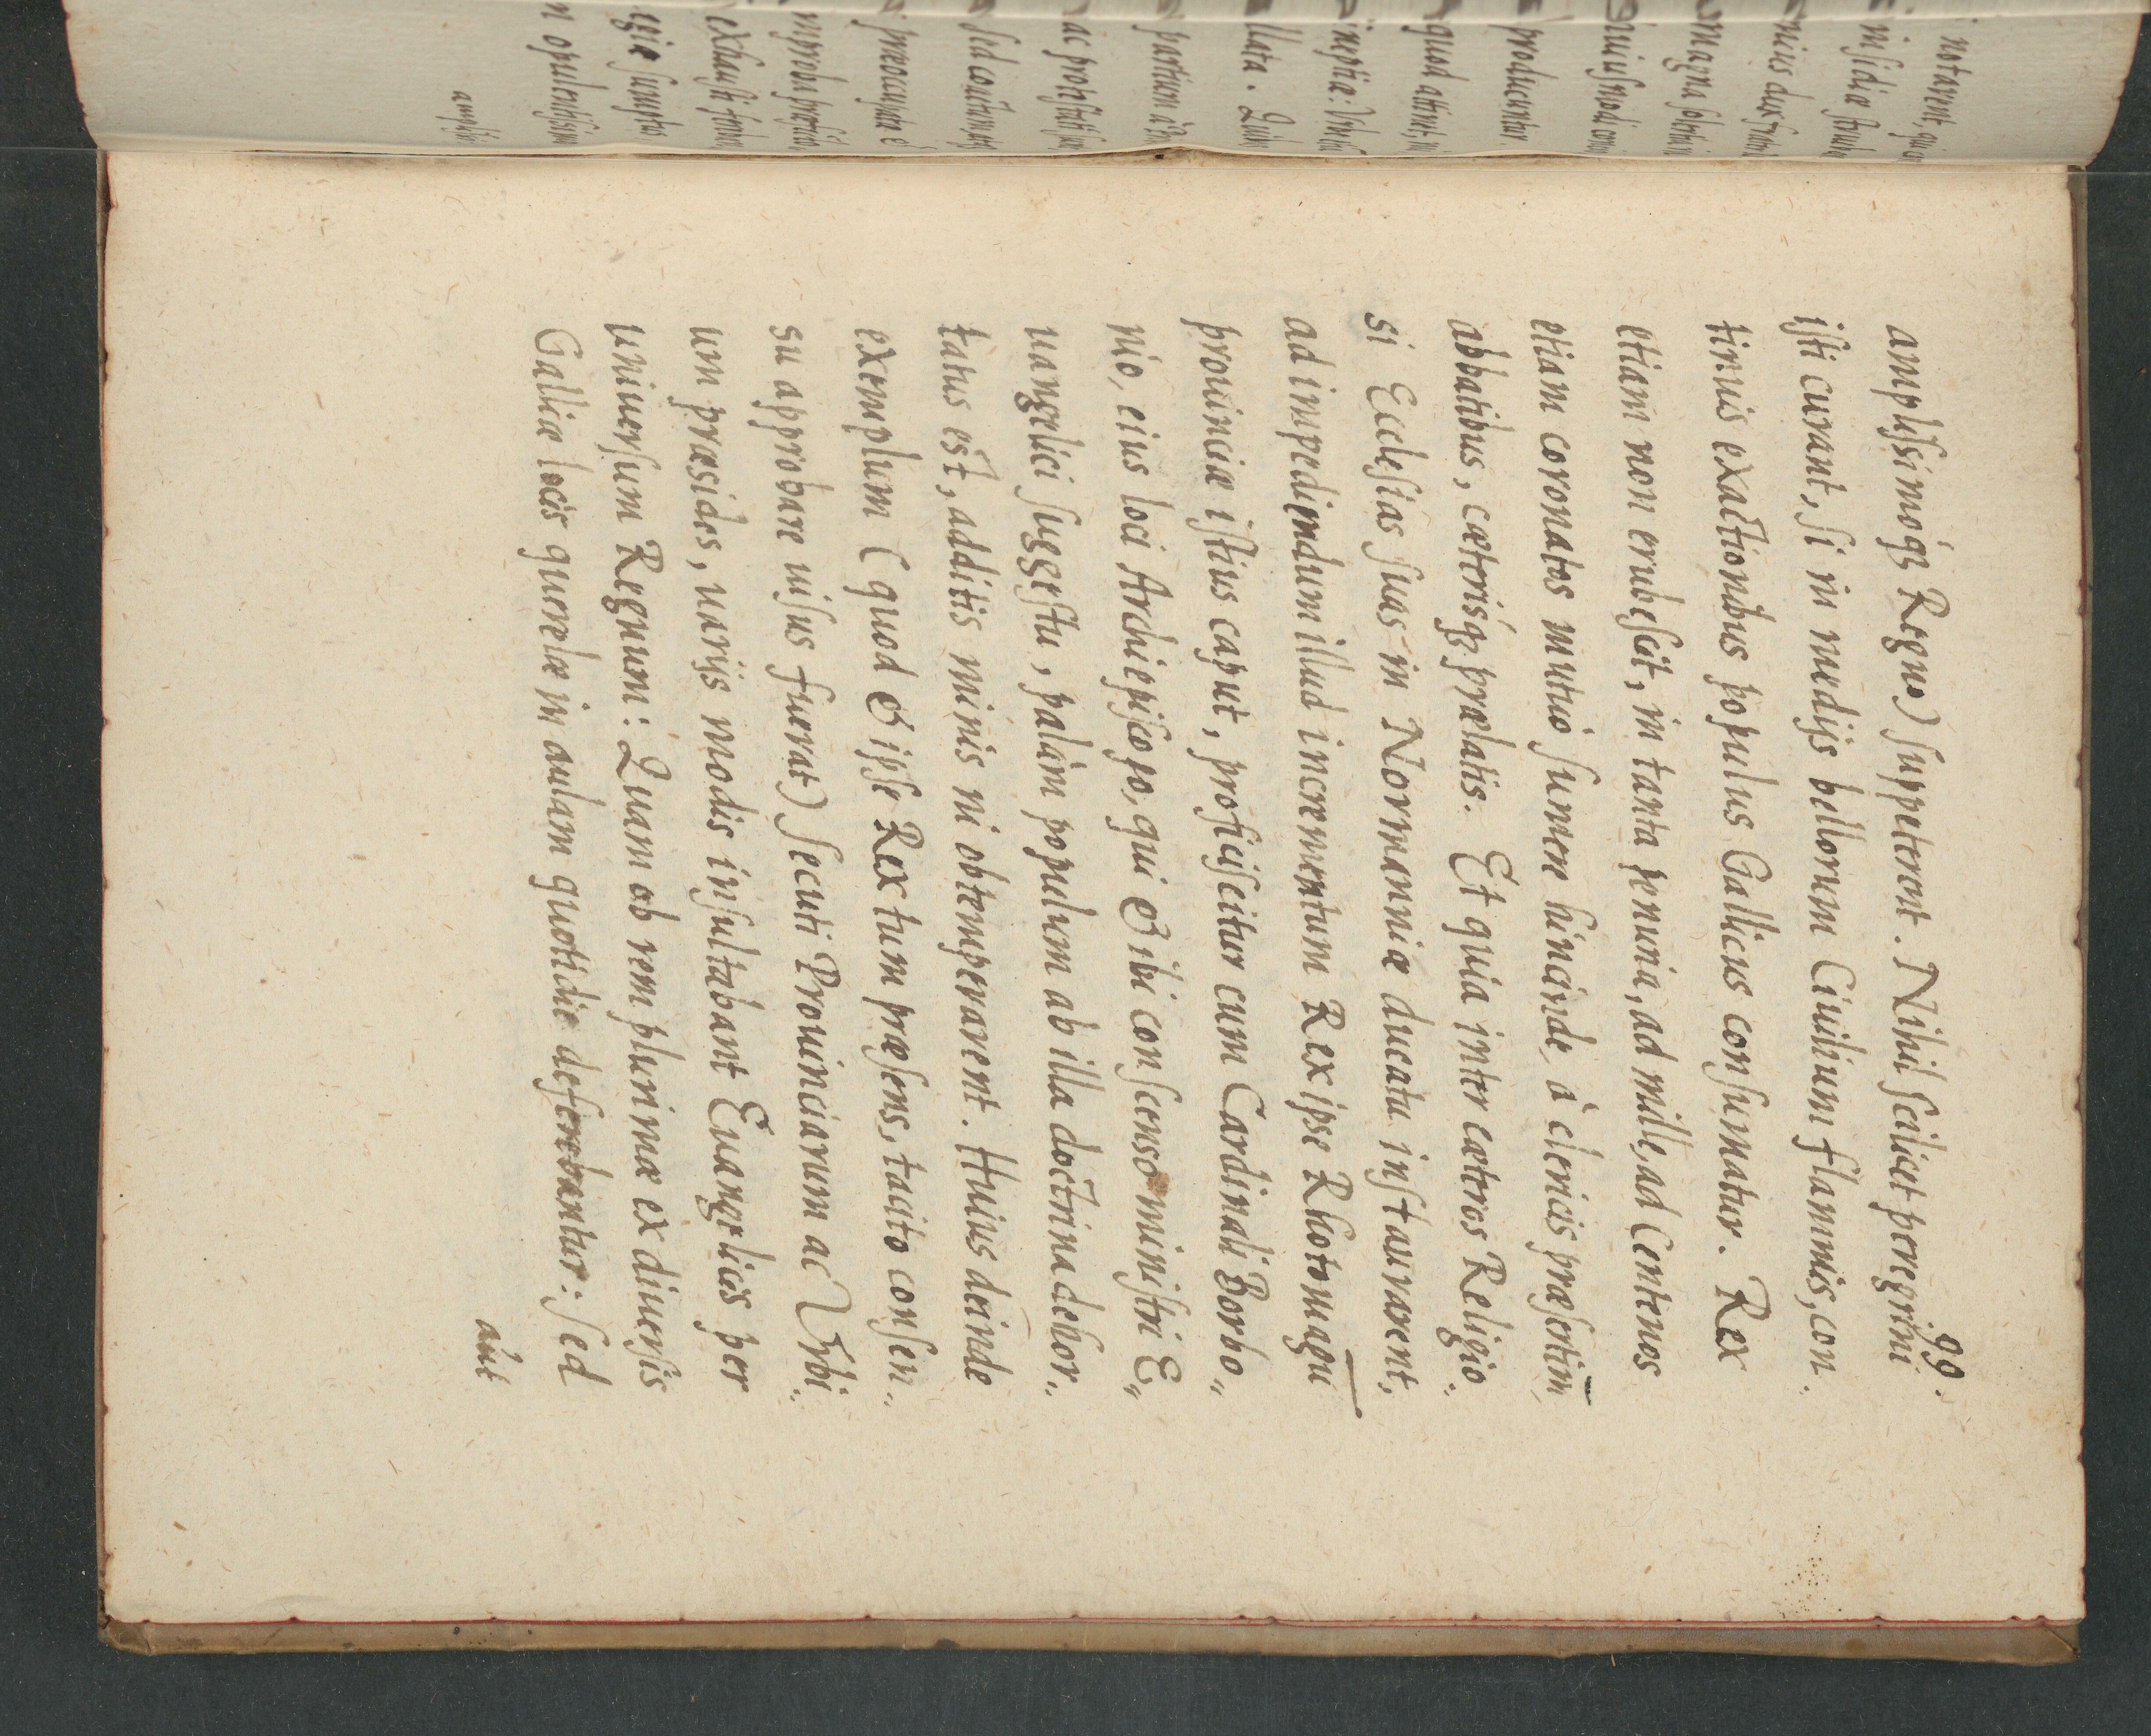 99.
amplissimoq́ꝫ Regno) suppeterent. Nihil scilicet peregrini
isti curant, si in medijs bellorum Ciuilium flammis, con..
tinuis exactionibus populus Gallicus consumatur. Rex
etiam non erubescit, in tanta penuria, ad mille, ad Centenos
etiam coronatos mutuò sumere hincinde à clericis præsertim
abbatibus, cæterisq́ꝫ prælatis. Et quia inter cæteros Religio..
si Ecclesias suas in Normanniæ ducatu instaurarent,
ad impediendum illud incrementum Rex ipse Rhotomagū
prouinciæ istius caput, proficiscitur cum Cardinali Borbo„
nio, eius loci Archiepiscopo, qui & ibi conscenso ministri E„
uangelici suggestu, palàm populum ab illa doctrina dehor..
tatus est, additis minis ni obtemperarent. Huius deinde
exemplum (quod & ipse Rex tum præsens, tacito consen..
su approbare uisus fuerat) secuti Prouinciarum ac Vrbi..
um præsides, uarijs modis insultabant Euangelicis per
uniuersum Regnum: Quam ob rem plurimæ ex diuersis
Galliæ locis querelæ in aulam quotidie deferebantur: sed
aut
notarent, qui
insidiæ
magna
huiusmodi
producentur.
quod attinet,
ineptia:
llata.
partium
ac
sed
præoccupatæ
opulentissim
amplis